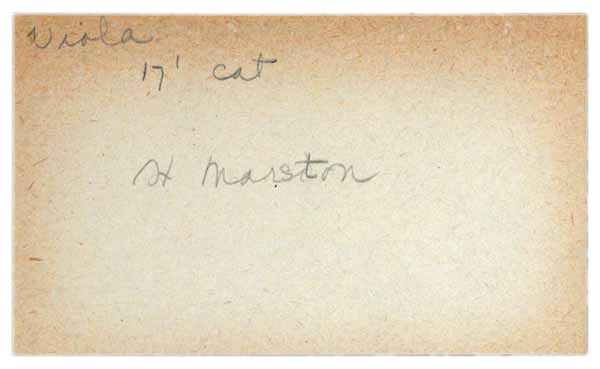 Viola
17' cat
H Marston